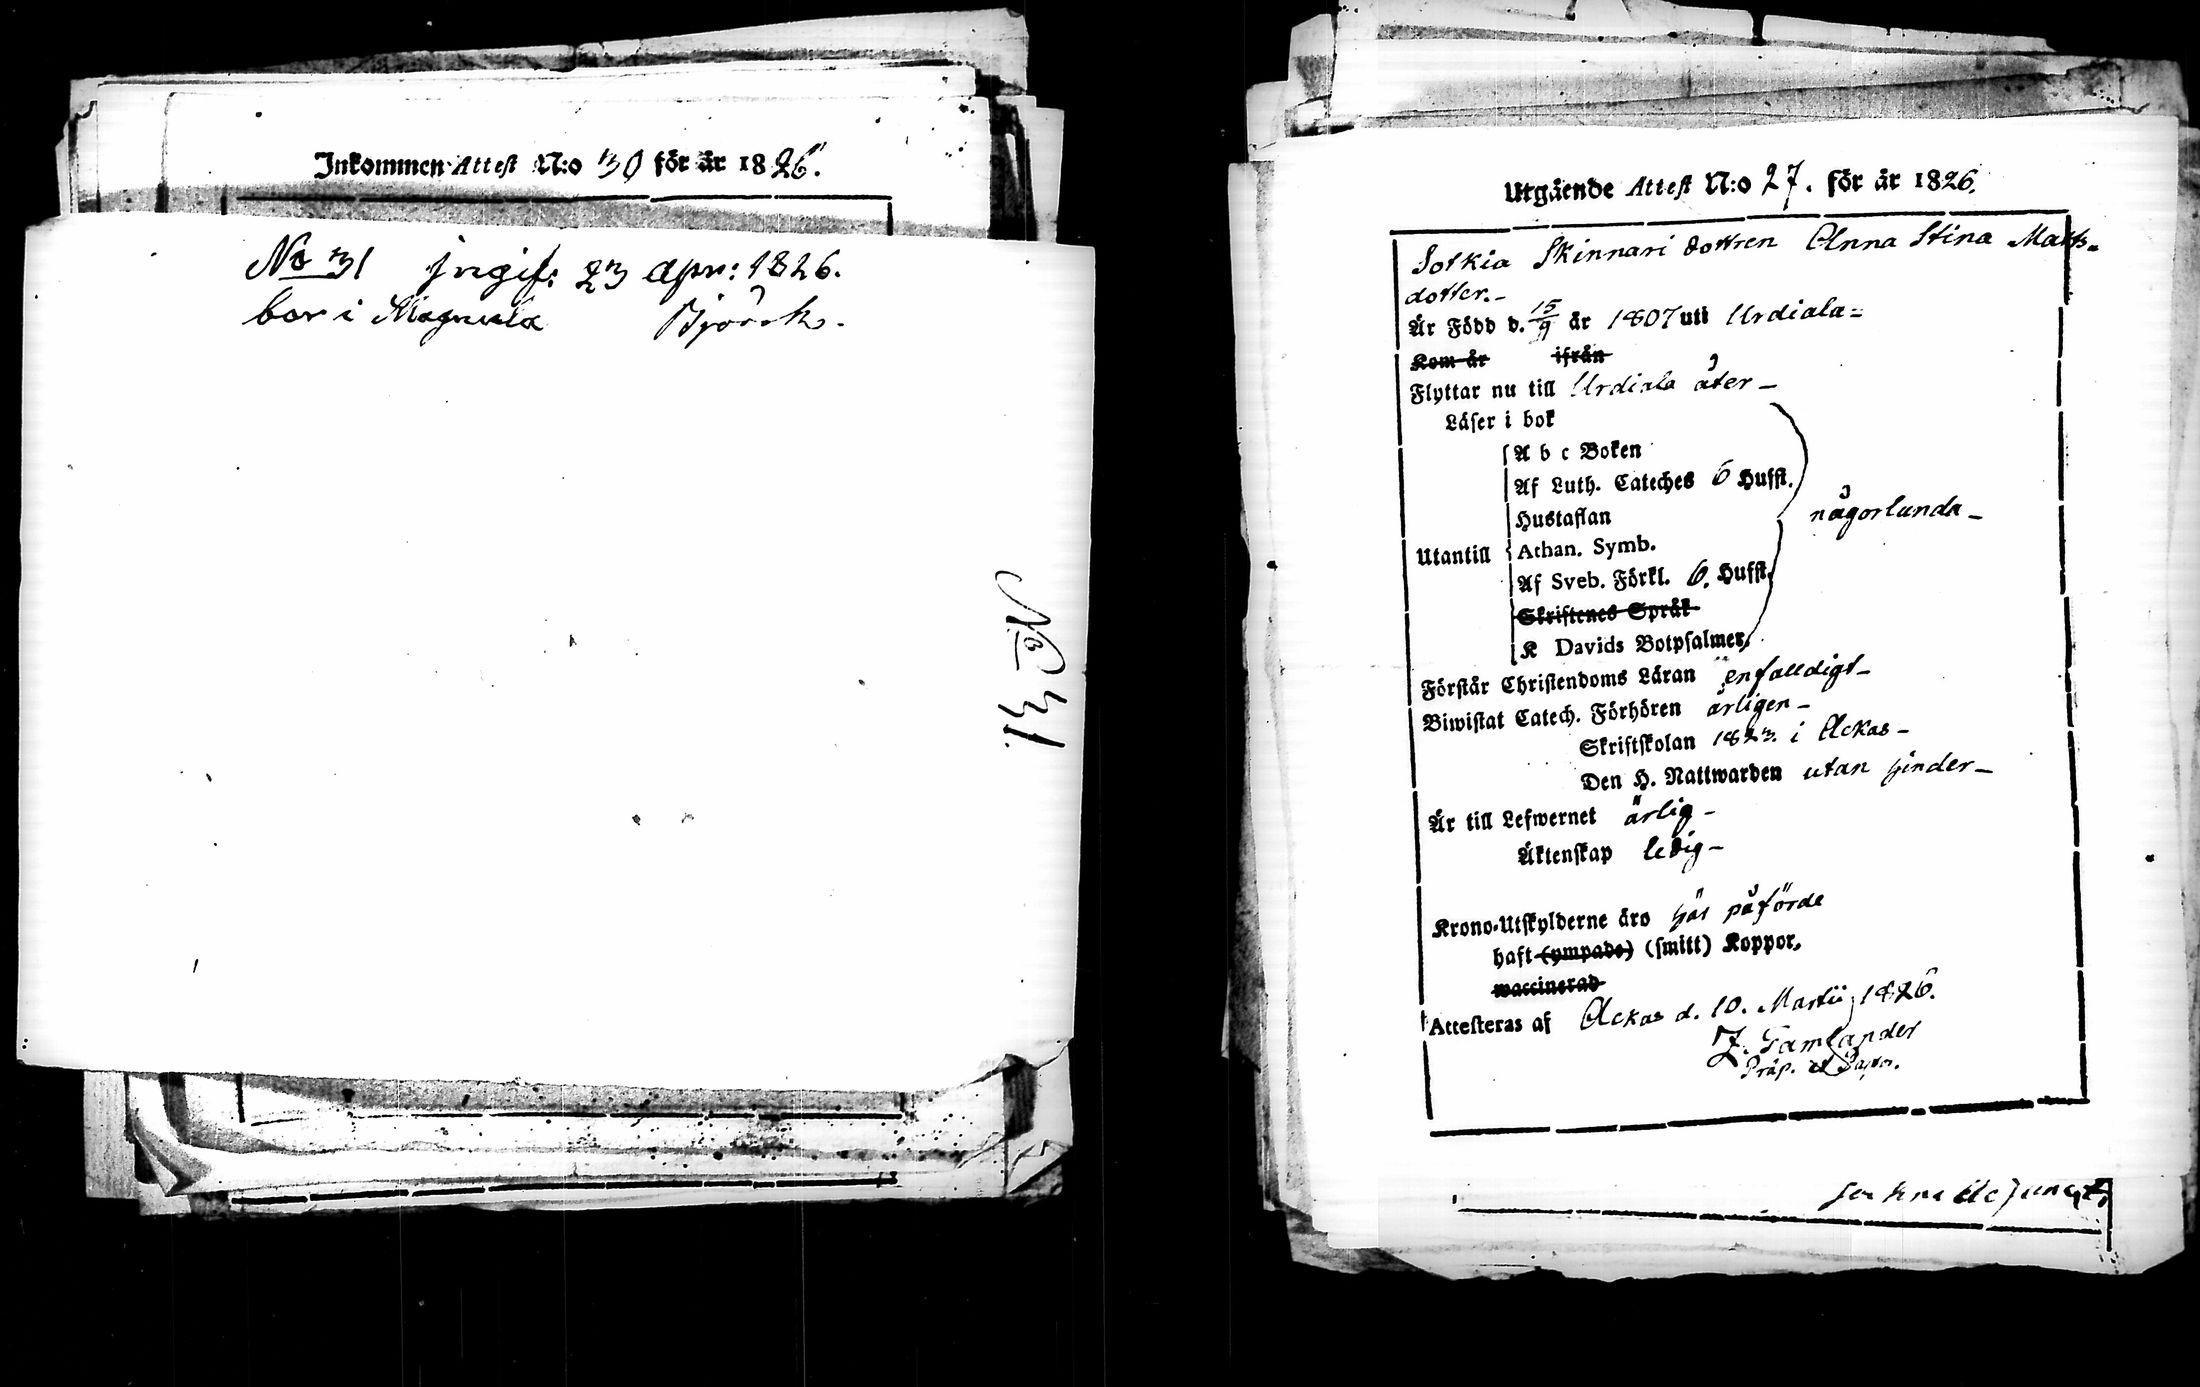 Inkommen Attest N:o 30 för år 1826.
No 31 ingif: 23 Apr: 1826.
bor i Björck.
No 31.
Utgående Attest N:o 27. för år 1826.
Sotkia Skinnari dottren Anna Stina Matts-
dotter.-
Är Född d. 15/9 år 1807 uti Urdiala=
Kom år ifrån
Flyttar nu till Urdiala åter-
Läser i bok
A b c Boken
Af Luth. Cateches 6 Hufst.
Hustaflan
någorlunda-
Utantill Athan. Symb.
Af Sveb. Förkl. 6. Hufst.
Skriftenes Språk
K Davids Botpsalmer,
Förstår Christendoms Läran enfalldigt-
Biwistat Catech. Förhören årligen-
Skriftskolan 1823. i Ackas-
Den H. Nattwarden utan hinder-
Är till Lefwernet ärlig-
Äktenskap ledig-
Krono-Utskylderne äro här påförde
haft (ympade) (smitt) Koppor,
waccinerad
Attesteras af Ackas d. 10. Martii 1826.
Z. Gamlander
Präp. et Pastor.